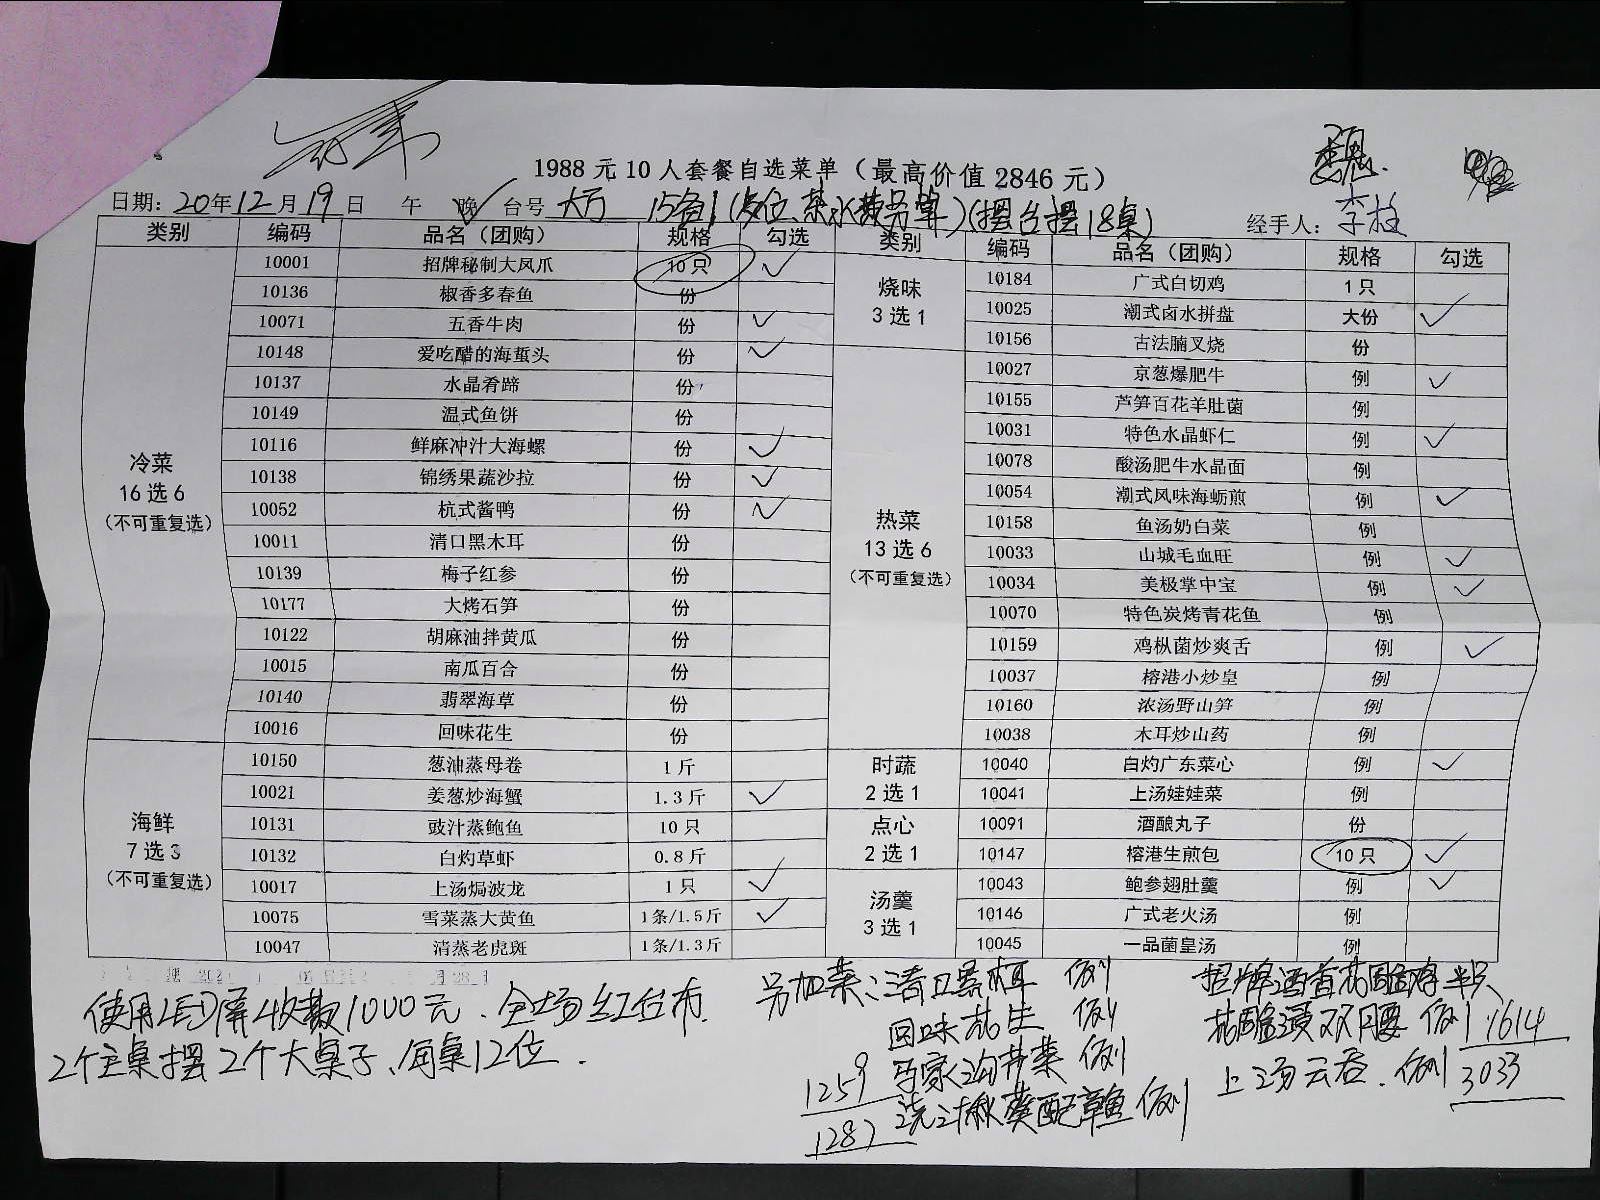 1988 元 10 人套餐自选菜单（最高价值 2846 元）
日期：20年12月19日 午 晚✓ 台号 大厅 15备1（餐位、茶水费另算）（摆台摆18桌） 经手人：李枝
类别 编码 品名（团购） 规格 勾选
冷菜
16 选 6
（不可重复选）
10001 招牌秘制大凤爪 10 只 ✓
10136 椒香多春鱼 份
10071 五香牛肉 份 ✓
10148 爱吃醋的海蜇头 份 ✓
10137 水晶肴蹄 份
10149 温式鱼饼 份
10116 鲜麻冲汁大海螺 份 ✓
10138 锦绣果蔬沙拉 份 ✓
10052 杭式酱鸭 份 ✓
10011 清口黑木耳 份
10139 梅子红参 份
10177 大烤石笋 份
10122 胡麻油拌黄瓜 份
10015 南瓜百合 份
10140 翡翠海草 份
10016 回味花生 份
海鲜
7 选 3
（不可重复选）
10150 葱油蒸母卷 1 斤
10021 姜葱炒海蟹 1.3 斤 ✓
10131 豉汁蒸鲍鱼 10 只
10132 白灼草虾 0.8 斤
10017 上汤焗波龙 1 只 ✓
10075 雪菜蒸大黄鱼 1条/1.5斤 ✓
10047 清蒸老虎斑 1条/1.3斤
类别 编码 品名（团购） 规格 勾选
烧味
3 选 1
10184 广式白切鸡 1 只
10025 潮式卤水拼盘 大份 ✓
10156 古法腩叉烧 份
热菜
13 选 6
（不可重复选）
10027 京葱爆肥牛 例 ✓
10155 芦笋百花羊肚菌 例
10031 特色水晶虾仁 例 ✓
10078 酸汤肥牛水晶面 例
10054 潮式风味海蛎煎 例 ✓
10158 鱼汤奶白菜 例
10033 山城毛血旺 例 ✓
10034 美极掌中宝 例 ✓
10070 特色炭烤青花鱼 例
10159 鸡枞菌炒爽舌 例 ✓
10037 榕港小炒皇 例
10160 浓汤野山笋 例
10038 木耳炒山药 例
时蔬
2 选 1
10040 白灼广东菜心 例 ✓
10041 上汤娃娃菜 例
点心
2 选 1
10091 酒酿丸子 份
10147 榕港生煎包 10 只 ✓
汤羹
3 选 1
10043 鲍参翅肚羹 例 ✓
10146 广式老火汤 例
10045 一品菌皇汤 例
使用LED屏收费1000元、全场红台布.
2个主桌摆2个大桌子、每桌12位.
另加菜：清口黑木耳 例
回味花生 例
1259 马家沟芹菜 例
1287 捞汁秋葵配章鱼 例
招牌酒香花雕鸡 半只
花雕浸双腰 例 1614
上汤云吞. 例 3033